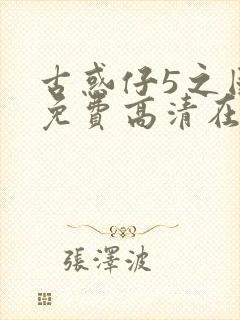 古惑仔5之
免費高清在
張澤波